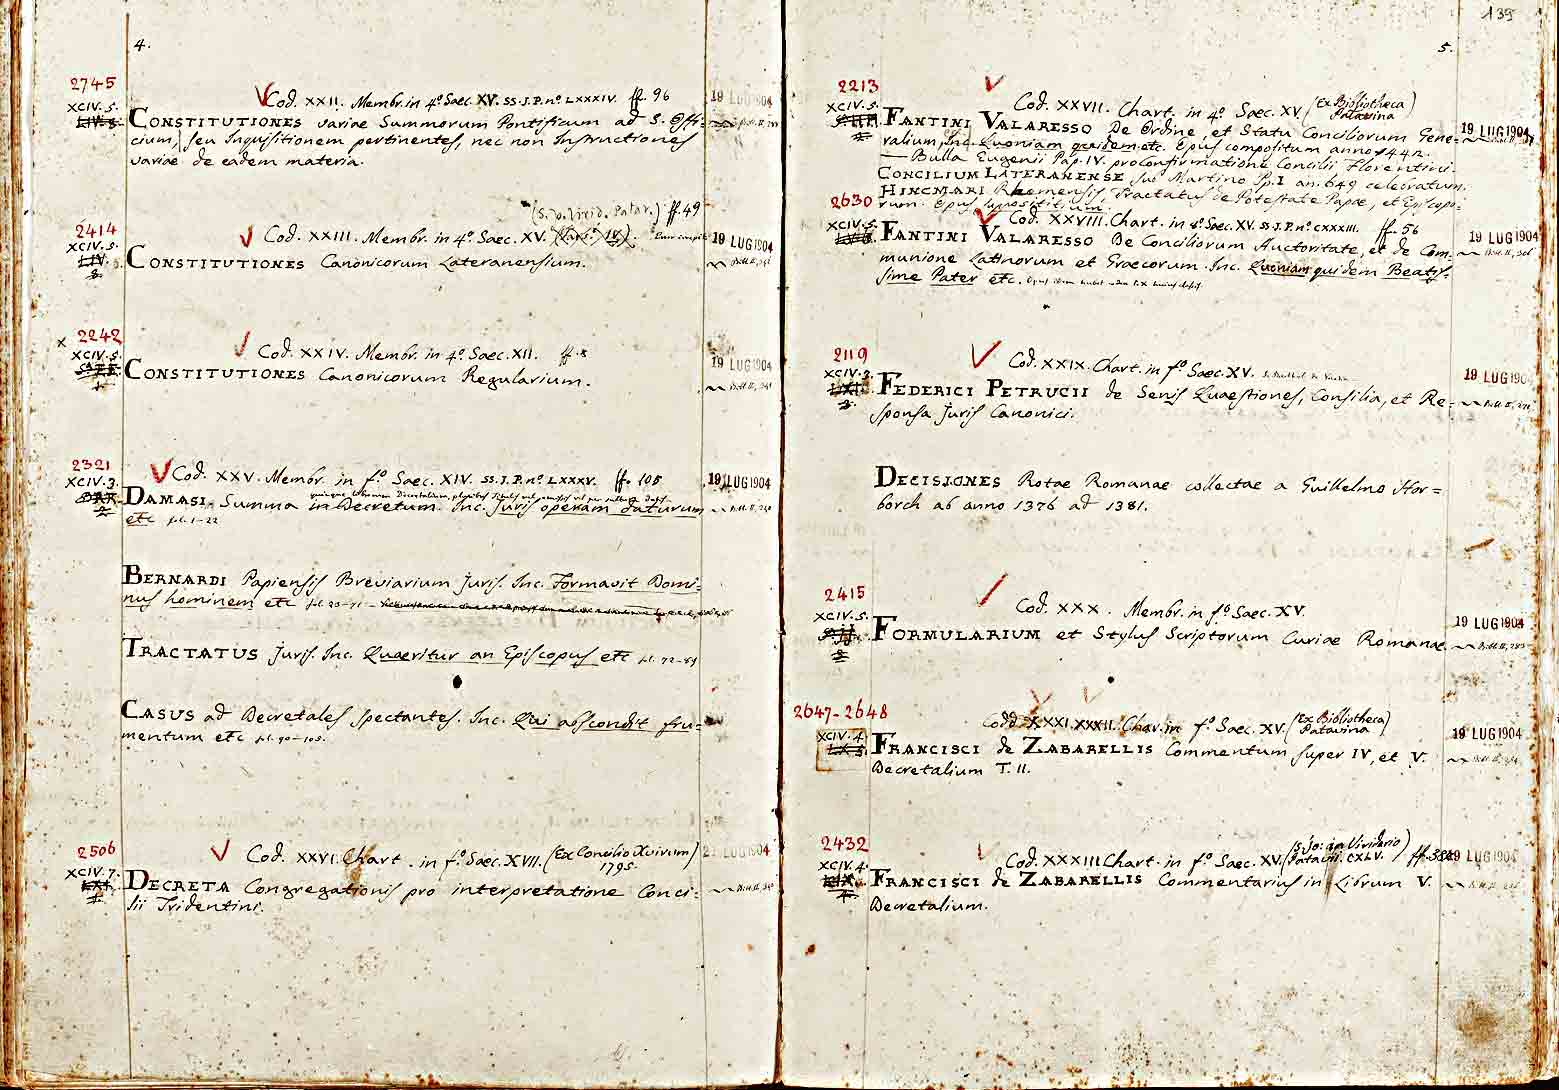 4.
2745
XCIV. 5.
Cod. XXII. Membr. in 4º. Saec. XV. SS. J. P. nº. LXXXIV. ff. 96
19 LUG 1904
CONSTITUTIONES variae Summorum Pontificum ad S. Offi=
cium, seu Inquisitionem pertinentes, nec non Instructiones
variae de eadem materia.
(S. Jo. Virid. Patav.) ff. 49
2414
XCIV. 5.
Cod. XXIII. Membr. in 4º. Saec. XV.
19 LUG 1904
CONSTITUTIONES Canonicorum Lateranensium.
x 2242
XCIV. 5.
Cod. XXIV. Membr. in 4º. Saec. XII. ff. 8
19 LUG 1904
CONSTITUTIONES Canonicorum Regularium.
2321
XCIV. 3.
Cod. XXV. Membr. in fº. Saec. XIV. SS. J. P. nº. LXXXV. ff. 105
19 LUG 1904
DAMASI. Summa in Decretum. Inc. Juris operam daturum
etc fol. 1-22
BERNARDI Papiensis Breviarium Juris. Inc. Formavit Domi=
nus hominem etc
TRACTATUS Juris. Inc. Quaeritur an Episcopus etc fol. 72-89
CASUS ad Decretales spectantes. Inc. Qui abscondit fru=
mentum etc fol. 90-105.
2506
XCIV. 7.
Cod. XXVI. Chart. in fº. Saec. XVII. (Ex Concilio Xvirum)
1795.
LUG 1904
DECRETA Congregationis pro interpretatione Conci=
lii Tridentini.
139
5.
2213
XCIV. 5.
Cod. XXVII. Chart. in 4º. Saec. XV. (Ex Bibliotheca)
Patavina
19 LUG 1904
FANTINI VALARESSO De Ordine, et Statu Conciliorum Gene=
ralium, Inc. Quoniam quidem etc. Opus compositum anno 1442.
— Bulla Eugenii Pap. IV. pro Confirmatione Concilii Florentini.
CONCILIUM LATERANENSE sub Martino Pp. I an. 649 celebratum.
HINCMARI Rhemensis, Tractatus de Potestate Papae, et Episcopo=
rum. Opus supposititium.
2630
XCIV. 5.
Cod. XXVIII. Chart. in 4º. Saec. XV. SS. J. P. nº. CXXXIII. ff. 56
19 LUG 1904
FANTINI VALARESSO De Conciliorum Auctoritate, et de Com=
munione Latinorum et Graecorum. Inc. Quoniam quidem Beatis=
sime Pater etc.
2119
XCIV. 3.
Cod. XXIX. Chart. in fº. Saec. XV.
19 LUG 1904
FEDERICI PETRUCII de Senis Quaestiones, Consilia, et Re=
sponsa Juris Canonici.
DECISIONES Rotae Romanae collectae a Guillelmo Hor=
borch ab anno 1376 ad 1381.
2415
XCIV. 5.
Cod. XXX. Membr. in fº. Saec. XV.
19 LUG 1904
FORMULARIUM et Stylus Scriptorum Curiae Romanae.
2647-2648
XCIV. 4.
Codd. XXXI. XXXII. Char. in fº. Saec. XV. (Ex Bibliotheca)
Patavina
19 LUG 1904
FRANCISCI de ZABARELLIS Commentum super IV, et V.
Decretalium T. II.
2432
XCIV. 4.
Cod. XXXIII Chart. in fº. Saec. XV. (S. Jo: in Viridario)
Patavii. CXLV.
19 LUG 1904
FRANCISCI de ZABARELLIS Commentarius in Librum V.
Decretalium.